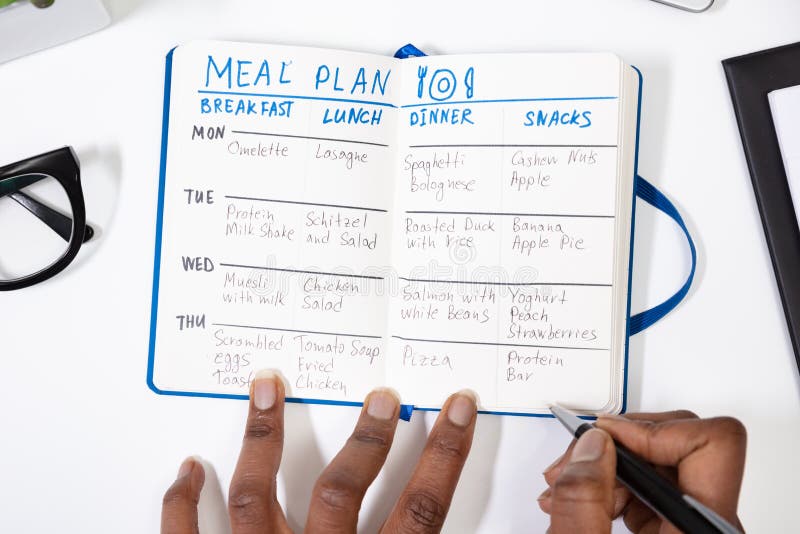 MEAL PLAN
BREAKFAST LUNCH DINNER SNACKS
MON
Omelette
Lasagne
Spaghetti
Bolognese
Cashew Nuts
Apple
TUE
Protein
Milk Shake
Schitzel
and Salad
Roasted Duck
with rice
Banana
Apple Pie
WED
Muesli
with milk
Chicken
Salad
Salmon with
white Beans
Yoghurt
Peach
Strawberries
THU
Scrambled
eggs
Toast
Tomato Soup
Fried
Chicken
Pizza
Protein
Bar
dreamstime